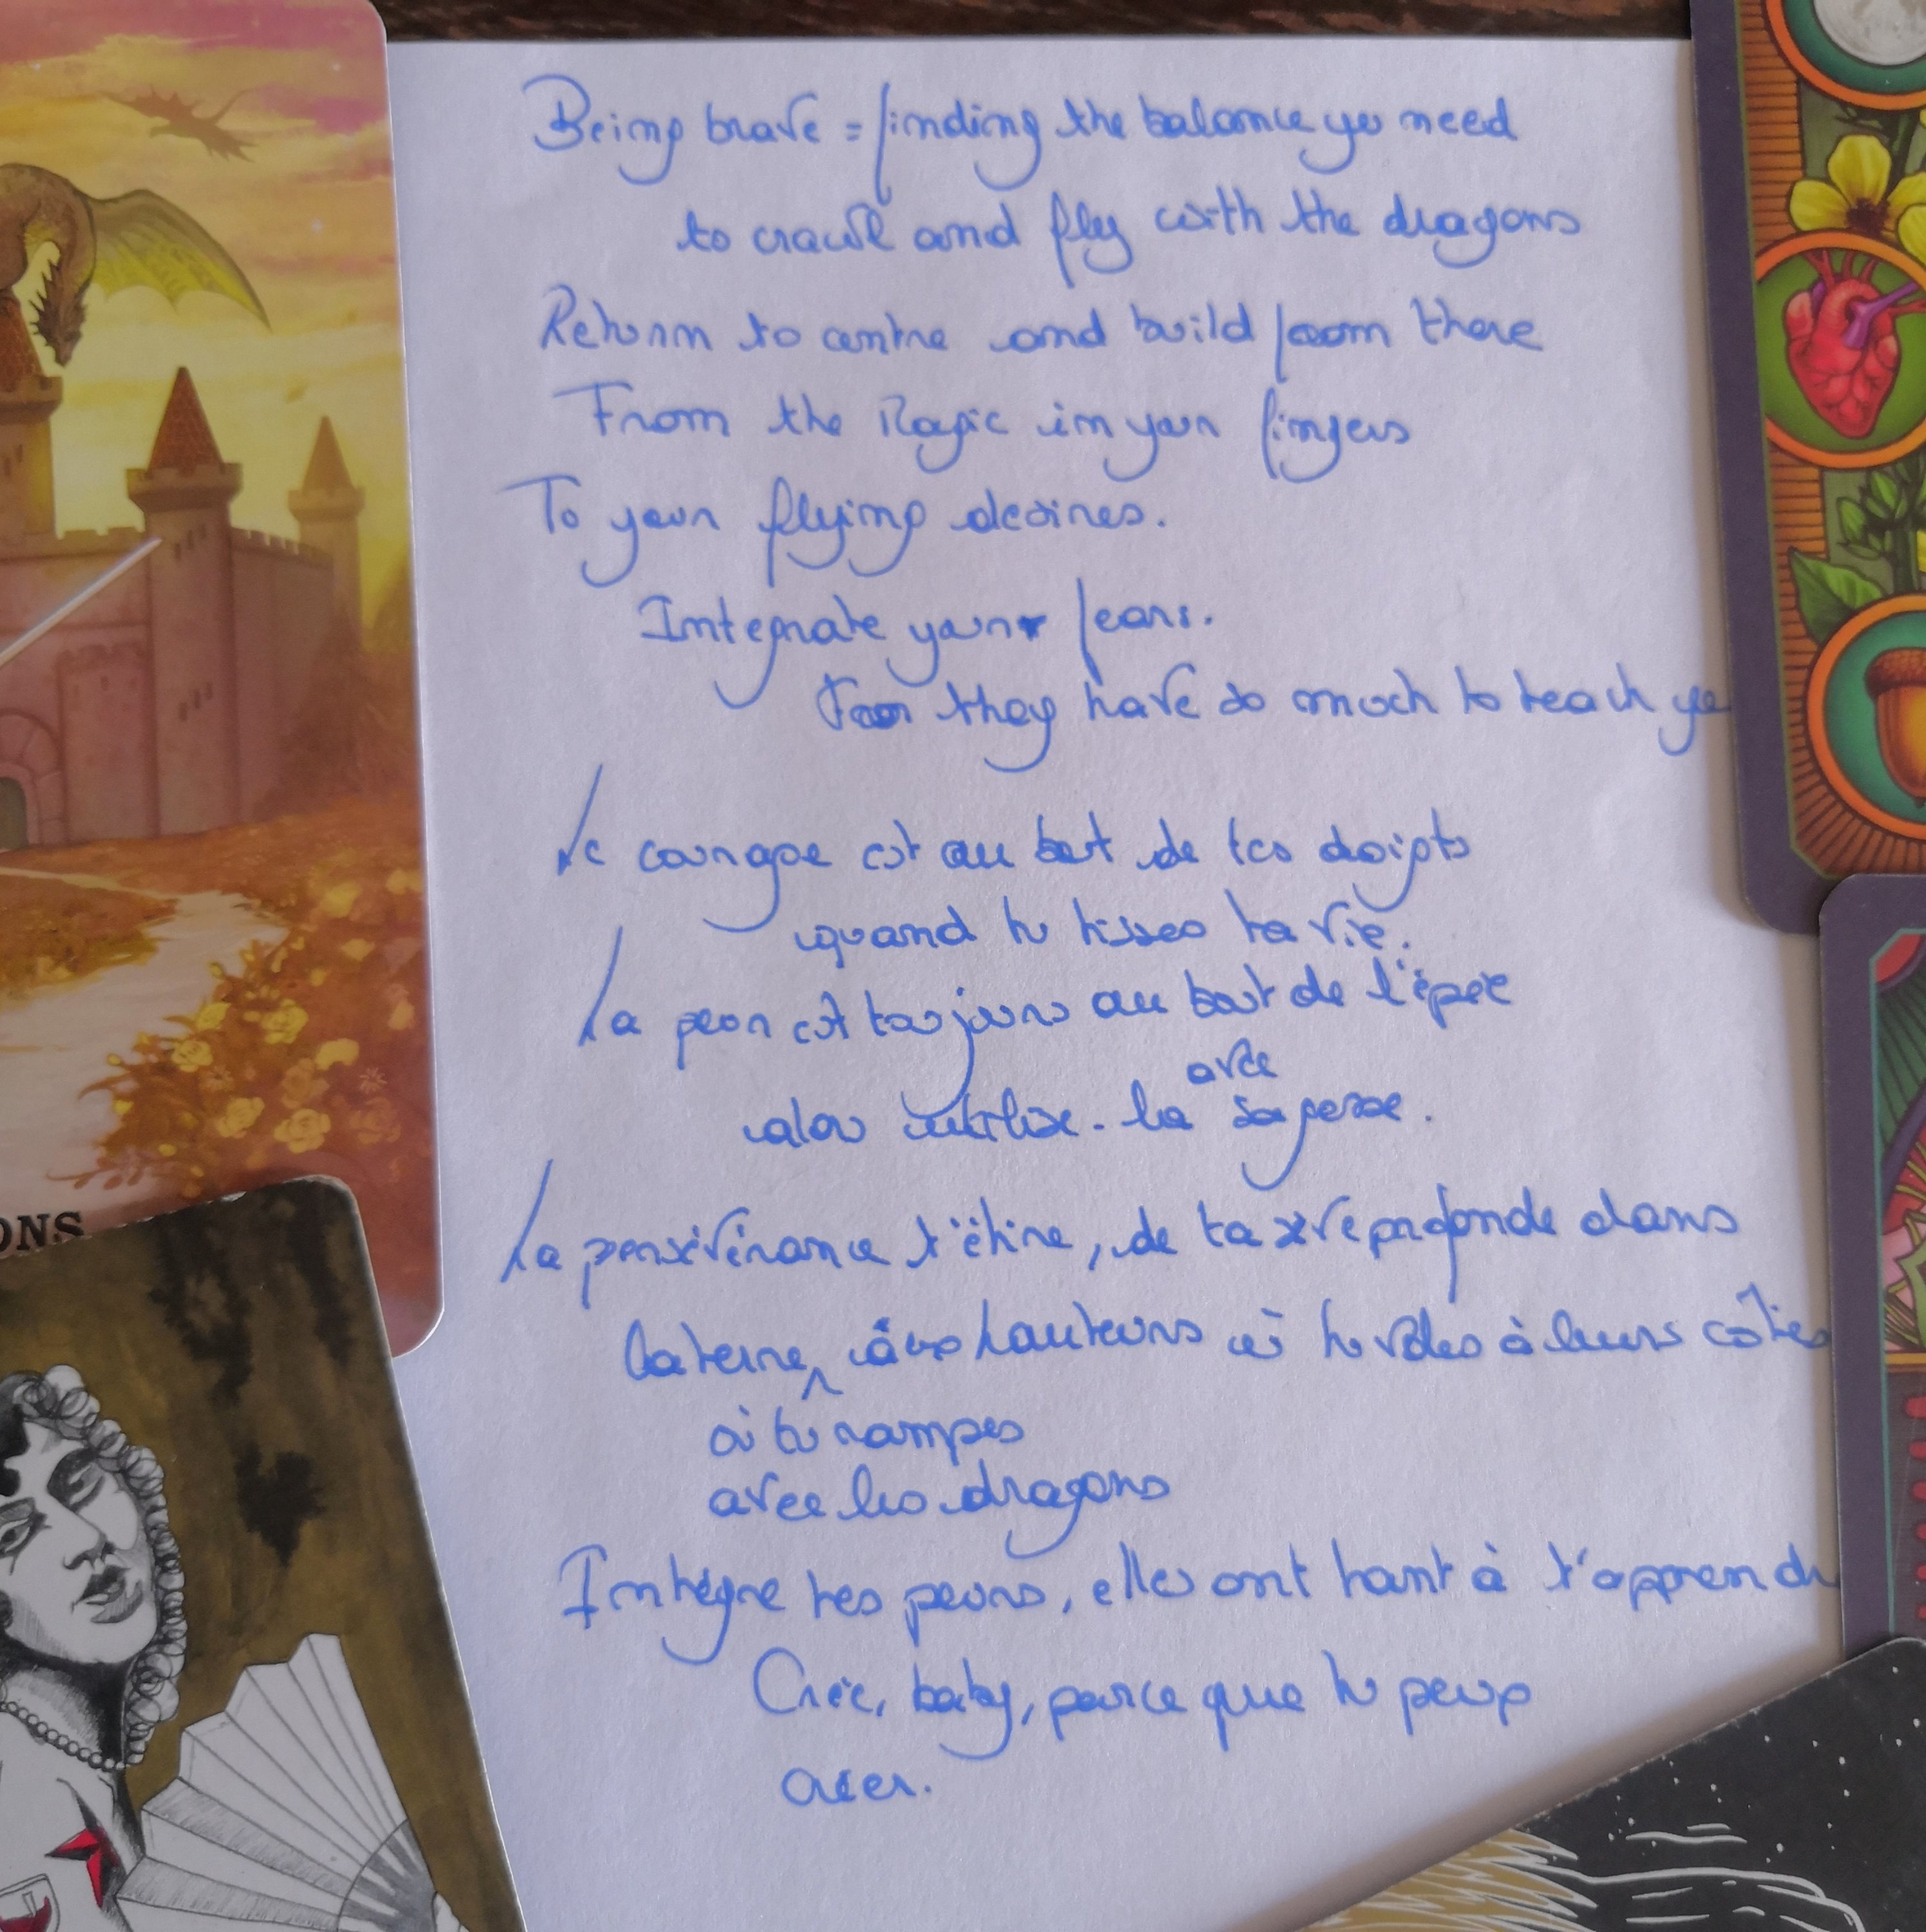 Being brave = finding the balance you need
to crawl and fly with the dragons
Return to centre and build from there
From the Magic in your fingers
To your flying desires.
Integrate your fears.
For they have so much to teach yo
Le courage est au bout de tes doigts
quand tu tisses ta vie.
La peur est toujours au bout de l'épée
avec
alors utilise-la sagesse.
La persévérance t'étire, de ta profonde dans
la terre, aux hauteurs où tu voles à leurs côtés
où tu rampes
avec les dragons
Intègre tes peurs, elles ont tant à t'apprend
Crée, baby, parce que tu peux
oser.
ONS